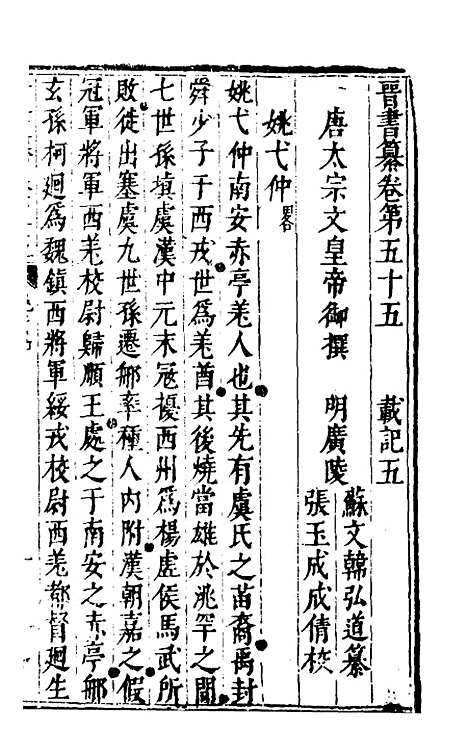 晉書纂卷第五十五　載記五
唐太宗文皇帝御撰　明廣陵
蘇文韓弘道纂
張玉成成倩校
姚弋仲畧
姚弋仲南安赤亭羌人也其先有虞氏之苗裔禹封
舜少子于西戎世爲羌酋其後燒當雄於洮罕之間
七世孫塡虞漢中元末寇擾西州爲楊虛侯馬武所
敗徙出塞虞九世孫遷郍率種人内附漢朝嘉之假
冠軍將軍西羌校尉歸順王處之于南安之赤亭郍
玄孫柯迴爲魏鎭西將軍綏戎校尉西羌都督迴生